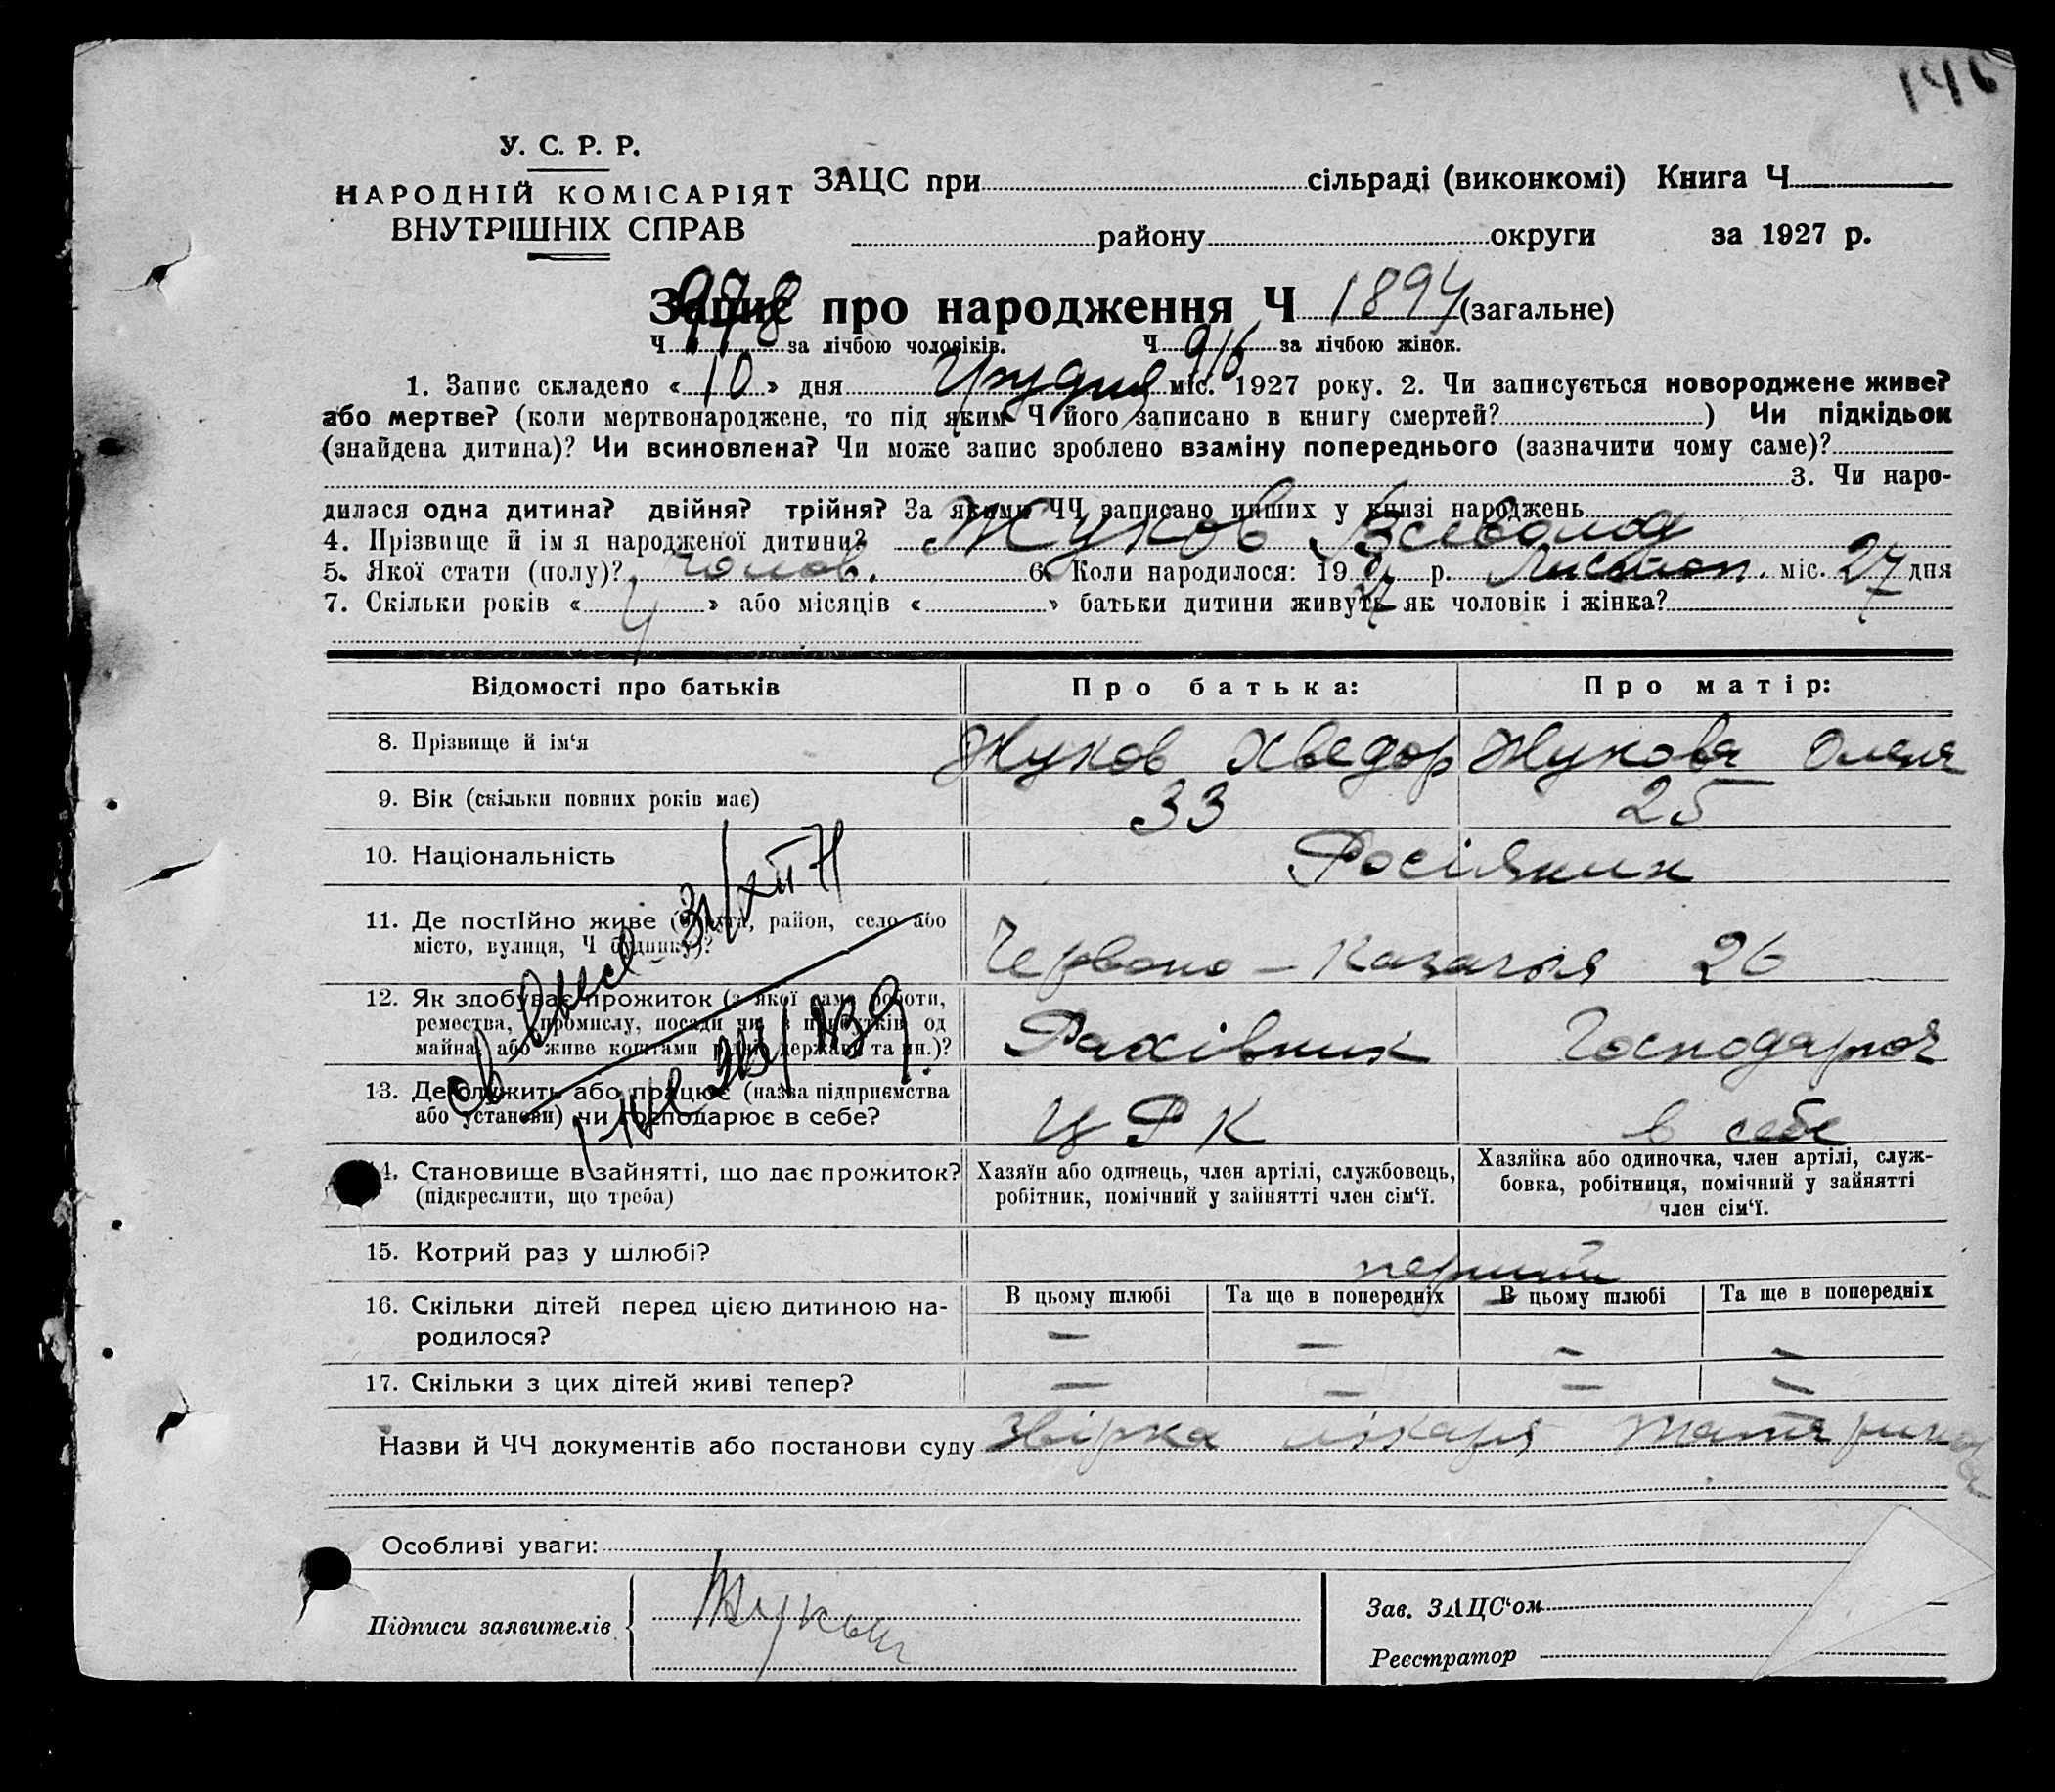 146
У. С. Р. Р.
НАРОДНІЙ КОМІСАРІЯТ
ВНУТРІШНІХ СПРАВ
ЗАЦС при сільраді (виконкомі) Книга Ч
району округи за 1927 р.
Запис про народження Ч 1894 (загальне)
Ч 978 за лічбою чоловіків. Ч 916 за лічбою жінок.
1. Запис складено « 10 » дня Грудня міс. 1927 року. 2. Чи записується новороджене живе?
або мертве? (коли мертвонароджене, то під яким Ч його записано в книгу смертей? ) Чи підкідьок
(знайдена дитина)? Чи всиновлена? Чи може запис зроблено взаміну попереднього (зазначити чому саме)?
3. Чи наро-
дилася одна дитина? двійня? трійня? За якими ЧЧ записано инших у книзі народжень
4. Прізвище й ім я народженої дитини? Жуков Всеволод
5. Якої стати (полу)? чолов. 6. Коли народилося: 19 27 р. Листоп. міс. 27 дня
7. Скільки років « 4 » або місяців « » батьки дитини живуть як чоловік і жінка?
Відомості про батьків Про батька: Про матір:
8. Прізвище й ім‘я Жуков Хведор Жукова Олена
9. Вік (скільки повних років має) 33 25
10. Національність Росіянин
11. Де постійно живе (округа, район, село або
місто, вулиця, Ч будинку)? Червоно-Казачья 26
12. Як здобуває прожиток (з якої саме роботи,
ремества, промислу, посади чи з прибутків од
майна, або живе коштами рідні, держави та ин.)? Рахівник Господарює
13. Де служить або працює (назва підприємства
або установи) чи господарює в себе? ЦРК в себе
14. Становище в зайнятті, що дає прожиток?
(підкреслити, що треба)
Хазяїн або одинець, член артілі, службовець,
робітник, помічний у зайнятті член сім‘ї.
Хазяйка або одиночка, член артілі, служ-
бовка, робітниця, помічний у зайнятті
член сім‘ї.
15. Котрий раз у шлюбі? перший
16. Скільки дітей перед цією дитиною на-
родилося?
В цьому шлюбі Та ще в попередніх В цьому шлюбі Та ще в попередніх
– – – –
17. Скільки з цих дітей живі тепер? – – – –
Назви й ЧЧ документів або постанови суду Звірка лікаря
Особливі уваги:
Підписи заявителів Жуков
Зав. ЗАЦС‘ом
Реєстратор